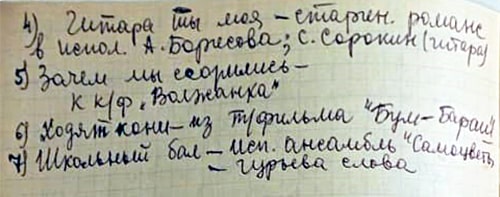 4) Гитара ты моя – старин. романс
в испол. А. Борисова; С. Сорокин (гитара)
5) Зачем мы ссорились –
к к/ф „Волжанка"
6) Ходят кони – из т/фильма "Бум-Бараш"
7) Школьный бал – исп. ансамбль "Самоцветы
– Гурьева слова